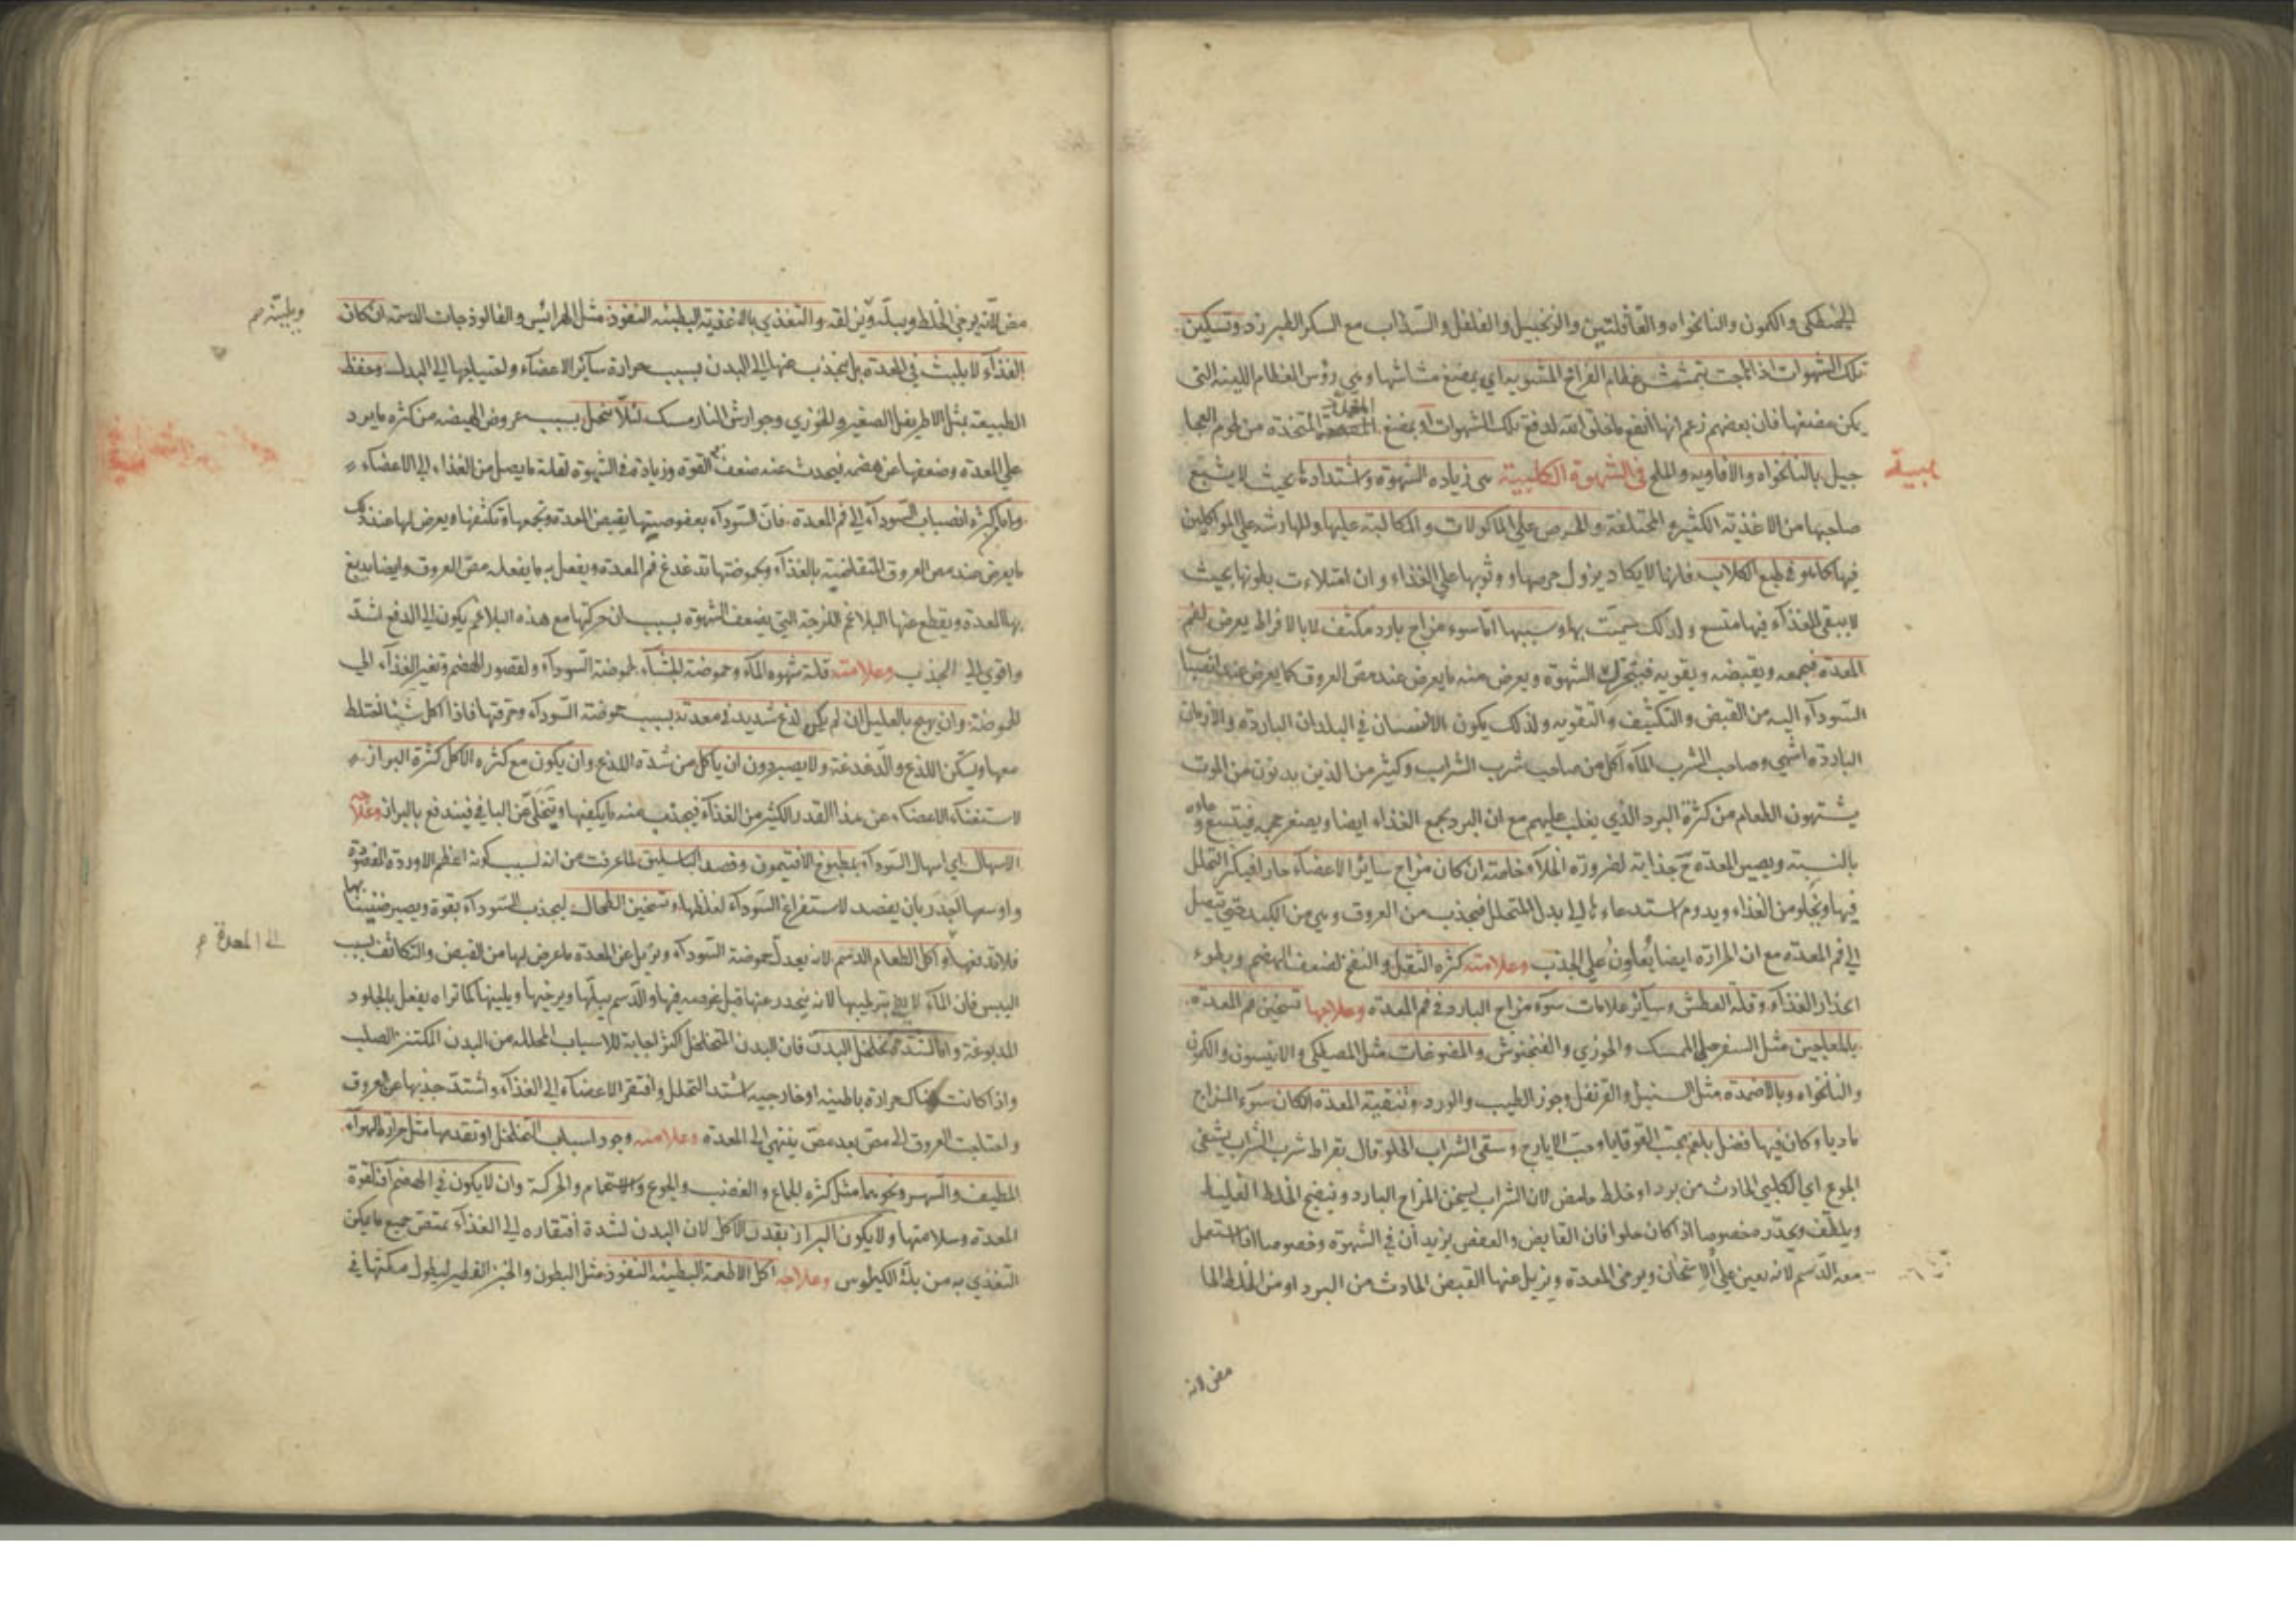 المصطكى والكمون والنانخواه والقاقلتين والزنجبيل والفلفل والسذاب مع السكر الطبرزد وتسكين
تلك الشهوات اذا هجت بتمشش عظام الفراخ المشوية اي بمضغ مشاشها وهي رؤس العظام اللينة التي
يمكن مضغها فان بعضهم زعم انها انفع ما خلق الله لدفع تلك الشهوات او بمضغ المتخذة من لحوم العجا
جيل بالنانخواه والافاويه والملح في الشهوة الكلبية هي زيادة الشهوة واشتدادها بحيث لا يشبع
صاحبها من الاغذية الكثيرة المختلفة والحرص على الماكولات والمكالبة عليها والمهارشة على المواكلين
فيها كما هو في طبع الكلاب فانها لا يكاد يزول حرصها ووثوبها على الغذاء وان امتلاءت بطونها بحيث
لا يبقى للغذاء فيها متسع ولذلك سميت بها وسببها اما سوء مزاج بارد مكثف لا بالافراط يعرض لفم
المعدة فيجمعه ويقبضه ويقويه فيتحرك الشهوة ويعرض منه ما يعرض عند مص العروق كما يعرض عند انصبا
السوداء اليه من القبض والتكثيف والتقوية ولذلك يكون الانسان في البلدان الباردة والازمان
الباردة اشهى وصاحب الشرب الماء اكل من صاحب شرب الشراب وكثير من الذين يدنون من الموت
يشتهون الطعام من كثرة البرد الذي يغلب عليهم مع ان البرد يجمع الغذاء ايضا ويصغر حجمه فيتسع وعاوه
بالنسبة ويصير المعدة ح جذابة لضرورة الخلاء وخاصة ان كان مزاج سائر الاعضاء حارا فيكثر التحلل
فيها ويخلو من الغذاء ويدوم استدعاوها الى بدل المتحلل فيجذب من العروق وهي من الكبد حتى يتصل
الى فم المعدة مع ان الحرارة ايضا يعاون على الجذب وعلامته كثرة الثقل والنفخ لضعف الهضم وبطوء
انحدار الغذاء وقلة العطش وسائر علامات سوء مزاج البارد في فم المعدة وعلاجها تسخين فم المعدة
بالمعاجين مثل السفرجلي الممسك والحوزي والفنجنوش والمضوغات مثل المصطكى والانيسون والكمون
والنانخواه وبالاضمدة مثل السنبل والقرنفل وجوز الطيب والورد وتنقية المعدة ان كان سوء المزاج
ماديا وكان فيها فضل بلغم بحب القوقايا وحب الايارج وسقى الشراب الحلو قال بقراط شرب الشراب يشفي
الجوع اي الكلبي الحادث من برد او خلط حامض لان الشراب يسخن المزاج البارد وينضج الخلط الغليظ
ويلطف ويحدر خصوصا اذا كان حلوا فان القابض والعفص يزيدان في الشهوة وخصوصا اذا استعمل
معه الدسم لانه يعين على الاسخان ويرخي المعدة ويزيل عنها القبض الحادث من البرد او من الخلط الحا
مض لانه
مض لانه يرخي الخلط ويبله ويزلقه والتغذي بالاغذية البطيئة النفوذ مثل الهرائس والفالوذجات الدسمة ان كان
ويلينه
الغذاء لا يلبث في المعدة بل يجذب عنها الى البدن بسبب حرارة سائر الاعضاء واحتياجها الى البدل وحفظ
الطبيعة بمثل الاطريفل الصغير والحوزي وجوارش النارمسك لئلا ينحل بسبب عروض الهيضة من كثرة ما يرد
على المعدة وضعفها عن هضمه فيحدث عنه ضعف القوة وزيادة في الشهوة لقلة ما يصل من الغذاء الى الاعضاء
واما كثرة انصباب السوداء الى فم المعدة فان السوداء بعفوصيتها يقبض المعدة وتجمعها وتكثفها ويعرض لها عند ذلك
ما يعرض عند مص العروق المتقاضية بالغذاء وبحموضتها تدغدغ فم المعدة ويفعل به ما يفعله مص العروق وايضا يدبغ
بها المعدة ويقطع عنها البلاغم اللزجة التي يضعف الشهوة بسبب ان حركتها مع هذه البلاغم يكون الى الدفع اشد
واقوى الى الجذب وعلامته قلة شهوة الماء وحموضة الجشاء لحموضة السوداء ولقصور الهضم وتغير الغذاء الى
الحموضة وان يهيج بالعليل ان لم ياكل لذع شديد في معدته بسبب حموضة السوداء وحرقتها فاذا اكل شيئا اختلط
معها وسكن اللذع والدغدغة ولا يصبر دون ان ياكل من شدة اللذع وان يكون مع كثرة الاكل كثرة البراز
لاستغناء الاعضاء عن هذا القدر الكثير من الغذاء فيجذب منه ما يكفيها ويتخلى عن الباقي فيندفع بالبراز وعلاجه
الاسهال اي اسهال السوداء بمطبوخ الافتيمون وفصد الباسليق لما عرفت من انه لسبب كونه اعظم الاوردة المفصودة
واوسعها اجدر بان يفصد لاستفراغ السوداء لغلظها وتسخين الطحال ليجذب السوداء بقوة ويصير ضنينا بها
فلا يدفعها واكل الطعام الدسم لانه يعدل حموضة السوداء ويزيل عن المعدة ما عرض لها من القبض والتكاثف بسبب
الى المعدة
اليبس فان الماء لا يفي بترطيبها لانه ينحدر عنها قبل غوصه فيها والدسم يبلها ويرخيها ويلينها كما تراه يفعل بالجلود
المدبوغة واما لشدة تخلخل البدن فان البدن المتخلخل اكثر اجابة للاسباب المحللة من البدن المكتنز الصلب
واذا كانت هناك حرارة باطنية او خارجية اشتد التحلل وافتقر الاعضاء الى الغذاء واشتد جذبها عن العروق
واحتاجت العروق الى مص بعد مص ينتهي الى المعدة وعلامته وجود اسباب التخلخل او تقدمها مثل حرارة الهواء
المطيف والسهر ونحوهما مثل كثرة الجماع والغضب والجوع والاستحمام والحركة وان لا يكون في الهضم افة لقوة
المعدة وسلامتها ولا يكون البراز بقدر الاكل لان البدن لشدة افتقاره الى الغذاء يمتص جميع ما يمكن
التغذي به من بلة الكيلوس وعلاجه اكل الاطعمة البطيئة النفوذ مثل البطون والخبز الفطير ليطول مكثها في